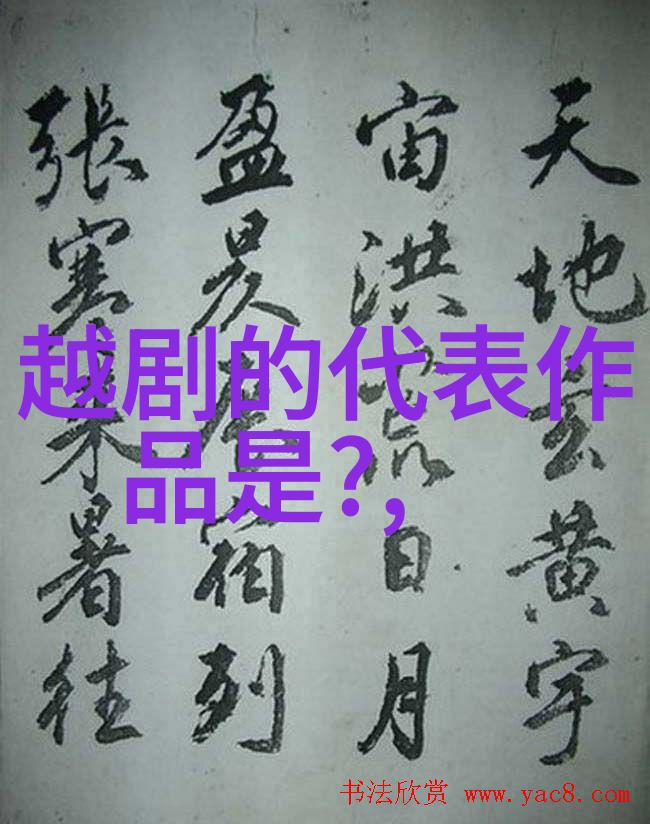 天地玄黄宇
宙洪荒日月
盈昃辰宿列
张寒来暑往
越剧的代表作
品是?,
书法欣赏 www.yac8.com